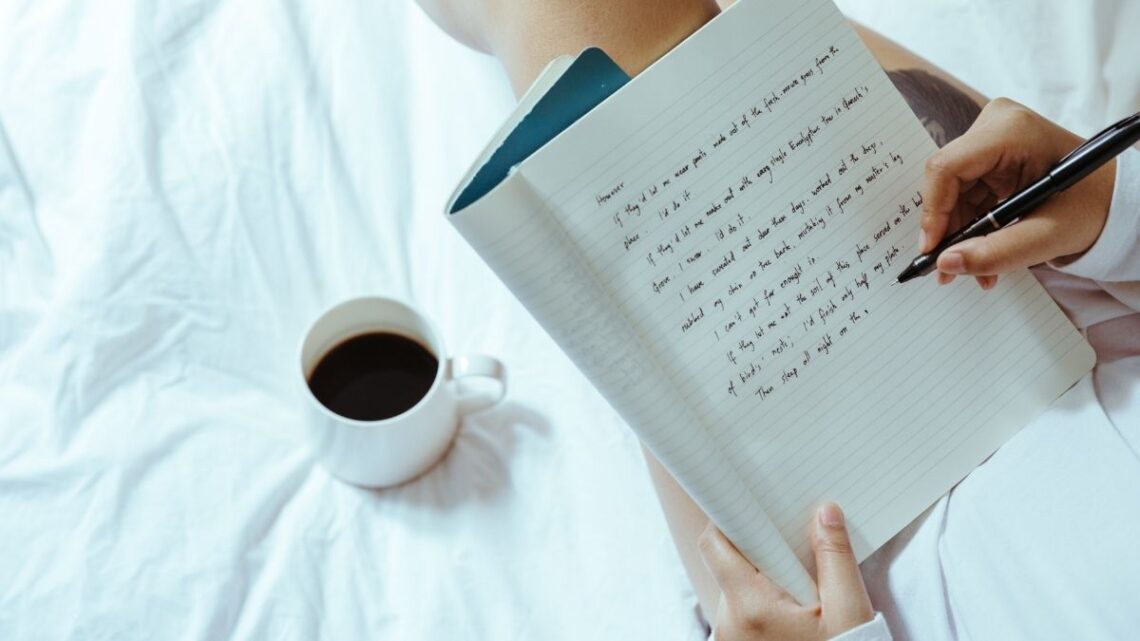 However
If they'd let me wear pants made out of the fresh-mown grass from the
place. I'd do it
If they'd let me make and with every single Eucalyptus tree in Queech's
Grove. I swear. I'd do it.
I have sweated out dew them days. worked out the days,
rubbed my chin on tree bark, mistaking it from my master's leg
I can't get far enough in.
If they let me eat the soil of this place served on the bed
of birds' nests; I'd finish only half my plate.
Then sleep all night on the